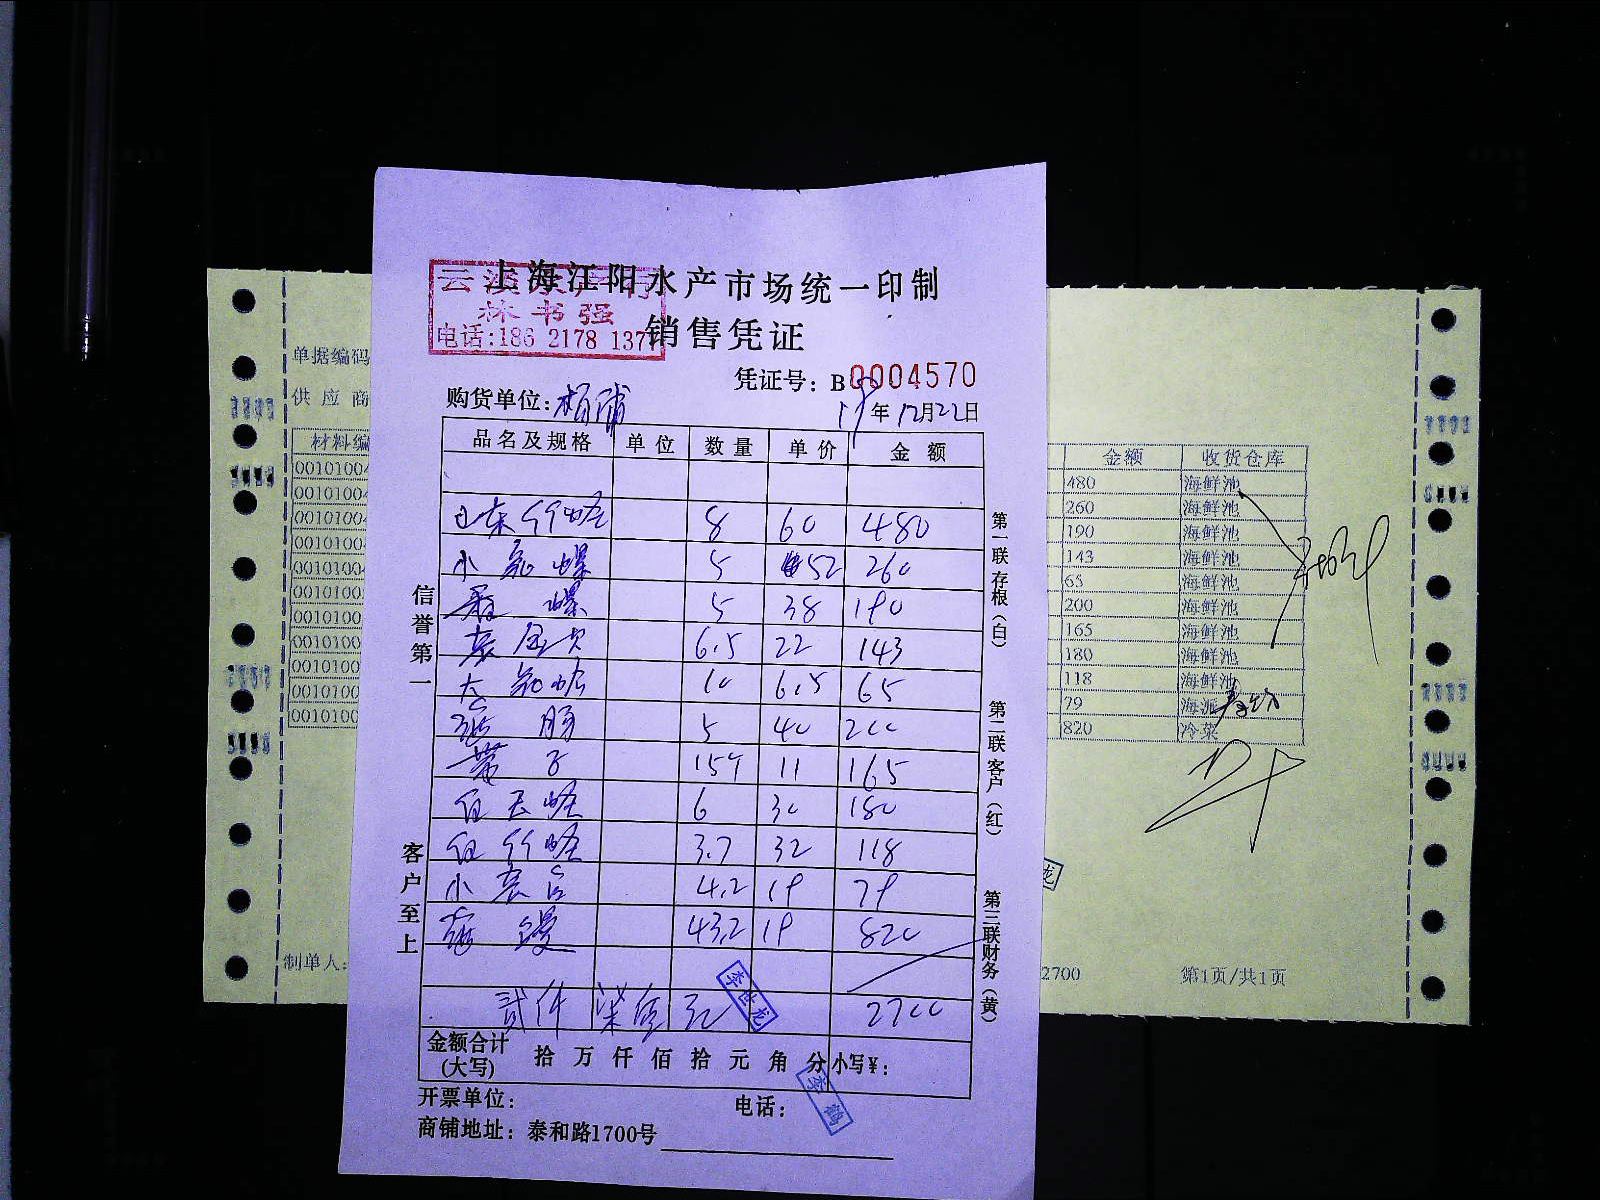 上海江阳水产市场统一印制
林书强
电话:186 2178 137
销售凭证
凭证号: B 0004570
购货单位:杨浦
19年12月22日
品名及规格 单位 数量 单价 金额
山东竹蛏 8 60 480
小 螺 5 52 260
螺 5 38 190
贝 6.5 22 143
大 蛤 10 6.5 65
海肠 5 40 200
带子 15个 11 165
白玉蛏 6 30 180
白竹蛏 3.7 32 118
小 4.2 19 79
海鳗 43.2 19 820
贰仟柒佰元 2700
李世龙
金额合计
(大写) 拾万仟佰拾元角分 小写¥:
李鹤
开票单位: 电话:
商铺地址: 泰和路1700号
信誉第一
客户至上
第一联存根(白)
第二联客户(红)
第三联财务(黄)
单据编码
供应商
材料编
0010100
0010100
0010100
0010100
0010100
0010100
0010100
0010100
0010100
0010100
0010100
制单人:
金额 收货仓库
480 海鲜池
260 海鲜池
190 海鲜池
143 海鲜池
65 海鲜池
200 海鲜池
165 海鲜池
180 海鲜池
118 海鲜池
79 海派
820 冷菜
龙
2700 第1页/共1页